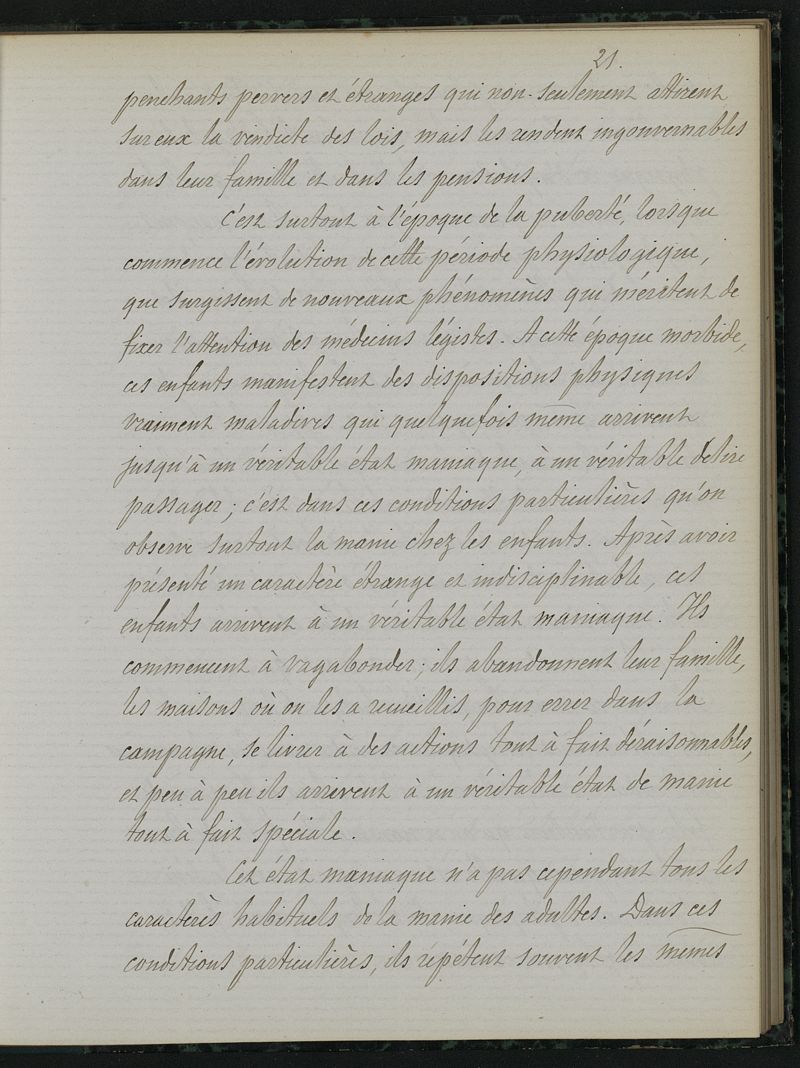 21.
penchants pervers et étranges qui non-seulement attirent
sur eux la vindicte des lois, mais les rendent ingouvernables
dans leur famille et dans les pensions.
C'est surtout à l'époque de la puberté, lorsque
commence l'évolution de cette période physiologique,
que surgissent de nouveaux phénomènes qui méritent de
fixer l'attention des médecins légistes. A cette époque morbide,
ces enfants manifestent des dispositions physiques
vraiment maladives qui quelquefois même arrivent
jusqu'à un véritable état maniaque, à un véritable delire
passager ; c'est dans ces conditions particulières qu'on
observe surtout la manie chez les enfants. Après avoir
présenté un caractère étrange et indisciplinable, ces
enfants arrivent à un véritable état maniaque. Ils
commencent à vagabonder ; ils abandonnent leur famille,
les maisons où on les a recueillis, pour errer dans la
campagne, se livrer à des actions tout à fait déraisonnables,
et peu à peu ils arrivent à un véritable état de manie
tout à fait spéciale.
Cet état maniaque n'a pas cependant tous les
caractères habituels de la manie des adultes. Dans ces
conditions particulières, ils répétent souvent les mêmes